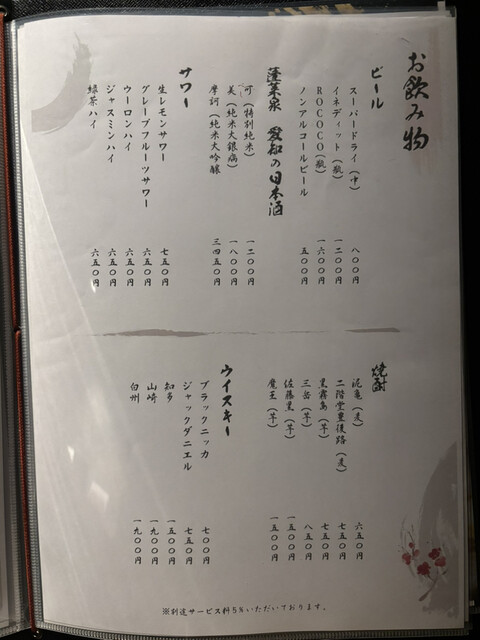 お飲み物
ビール
スーパードライ(中) 八〇〇円
イネディット(瓶) 一二〇〇円
ROCOCO(瓶) 一六〇〇円
ノンアルコールビール 五〇〇円
蓬莱泉 愛知の日本酒
可(特別純米) 一二〇〇円
美(純米大吟醸) 一八〇〇円
摩訶(純米大吟醸) 三四五〇円
サワー
生レモンサワー 七五〇円
グレープフルーツサワー 六五〇円
ウーロンハイ 六五〇円
ジャスミンハイ 六五〇円
緑茶ハイ 六五〇円
焼酎
泥亀(麦) 六五〇円
二階堂豊後路(麦) 七五〇円
黒霧島(芋) 七五〇円
三岳(芋) 八五〇円
佐藤黒(芋) 一五〇〇円
魔王(芋) 一五〇〇円
ウイスキー
ブラックニッカ 七〇〇円
ジャックダニエル 七五〇円
知多 一五〇〇円
山崎 一九〇〇円
白州 一九〇〇円
※別途サービス料5%いただいております。